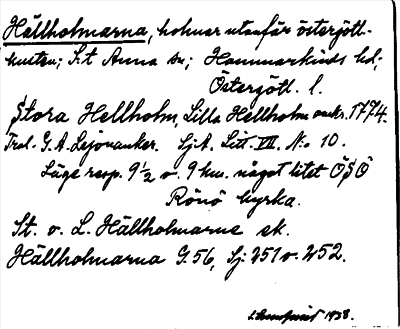 Hällholmarna, holmar utanför östergötl.-
kusten; S:t Anna sn; Hammarkinds hd;
Östergötl. l.
Stora Hellholm, Lilla Hellholm omkr. 1774.
Trol. G. A. Lejonanker. Sj.A. Litt. VII. No 10.
Läge resp. 9½ o. 9 km. något litet ÖSÖ
Rönö kyrka.
St. o. L. Hällholmarne sk.
Hällholmarna G. 56, Sj. 251 o. 252.
1938.